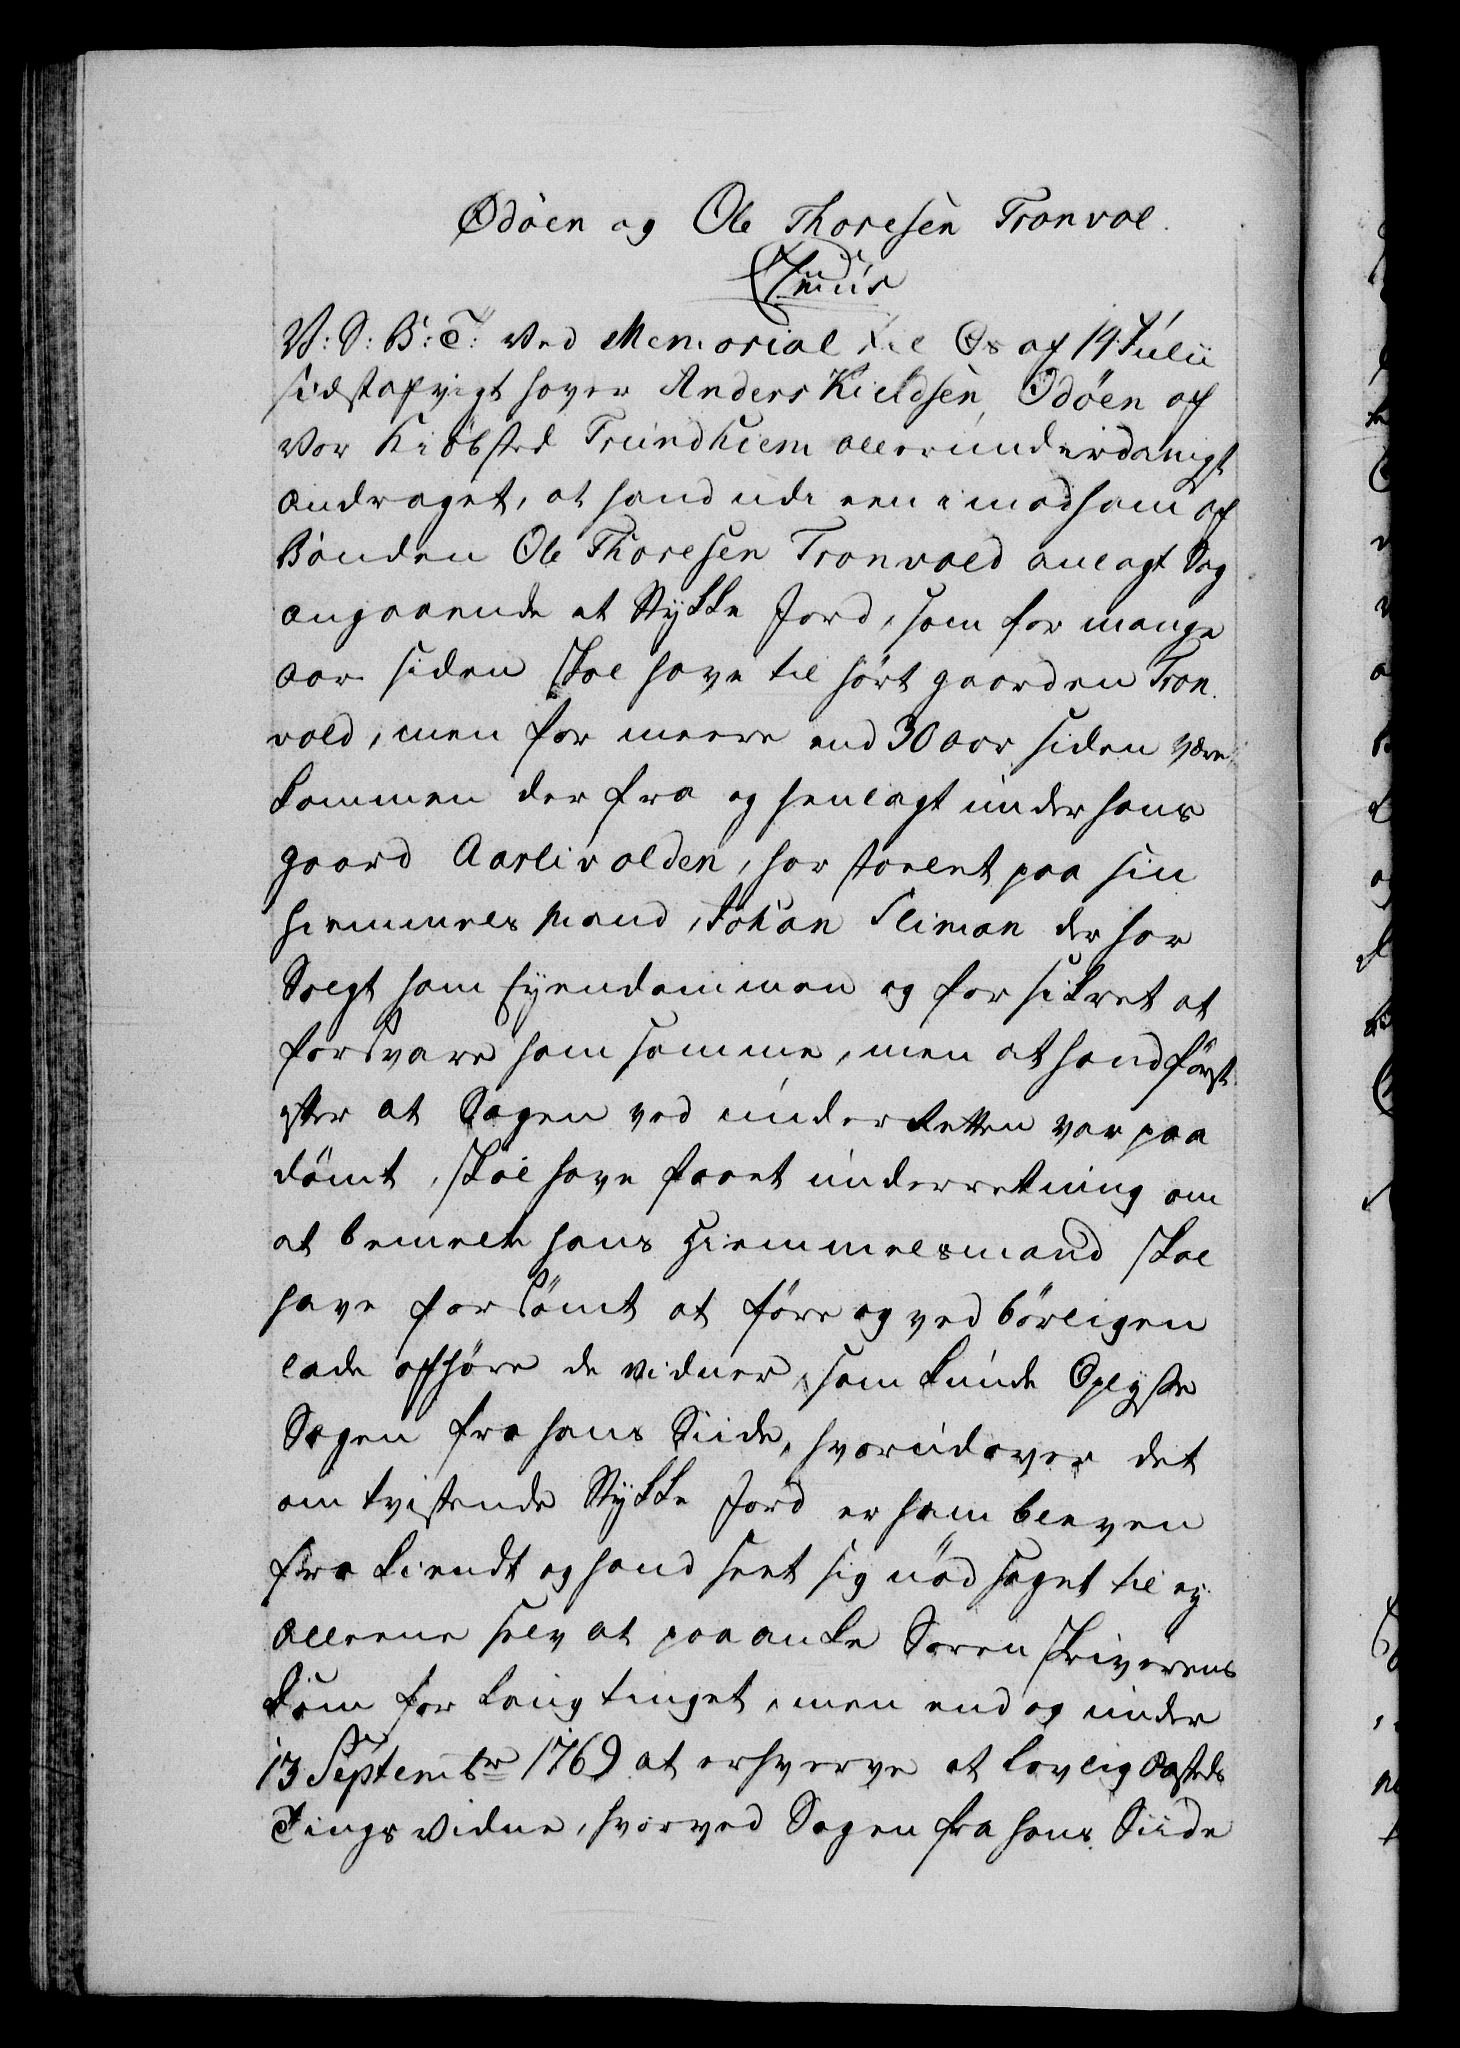 Ødöen og Ole Thoresen Tronvol.
V: S: B: T: Ved Memorial til Os af 14 Julii
sidstafvigt haver Anders Kieldsen Ødöen af
Vor Kiöbsted Trundhiem allerunderdanigst
andraget, at hand udi een imod ham af
Bonden Ole Thoresen Tronvold anlagt Sag
angaaende et Stykke Jord, som for mange
aar siden skal have til hört gaarden Tron
vold, men for meere end 30 aar siden være
kommen der fra og henlagt under hans
gaard Aarlivolden, har stoelet paa sin
Hiemmels Mand, Johan Sliman der har
Solgt ham Eyendommen og forsikret at
forsvare ham samme, men at hand först
efter at Sagen ved underRetten var paa
dömt, skal have faaet underretning om
at bemelte hans Hiemmelsmand skal
have forsömt at före og ved börligen
lade afhöre de vidner, som kunde Oplyse
Sagen fra hans Siide, hvorudover det
om tvistende Stykke Jord er ham bleven
fra kiendt og hand seet sig nödsaget til ey
alleene selv at paaanke Soren skriverens
Dom for Laugtinget, men end og under
13 Septembr 1769 at erhverve et lovlig Aasteds
Tings vidne, hvorved Sagen fra hans Siide